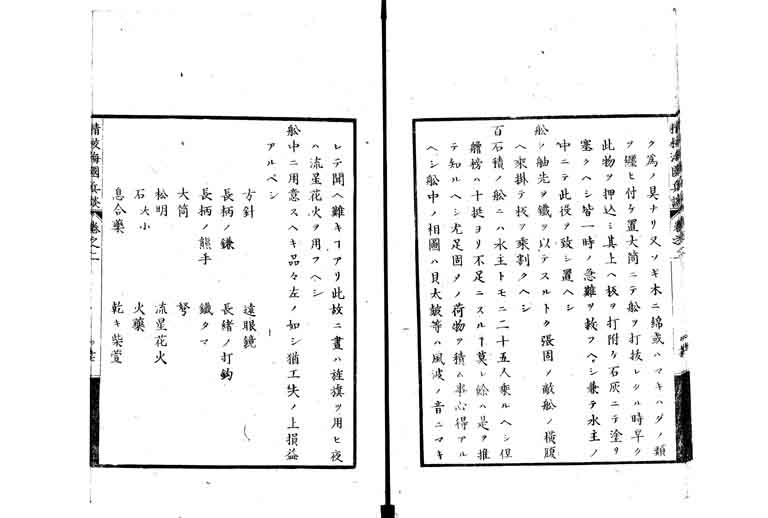 ク為ノ具ナリ又ソギ木ニ綿或ハマキハダノ類
ヲ纏ヒ付ケ置大筒ニテ舩ヲ打抜レタル時早ク
此物ヲ押込ミ其上ヘ板ヲ打附ケ石灰ニテ塗リ
塞クヘシ皆一時ノ急難ヲ救フヘシ兼テ水主ノ
中ニテ此役ヲ致シ置ヘシ
舩ノ舳先ヲ鐵ヲ以テスルトク張固メ敵舩ノ横腹
ヘ乗掛テ於ヲ乗割クヘシ
百石積ノ舩ニハ水主トモニ二十五人乗ルヘシ但
艪榜ハ十挺ヨリ不足ニスルヿ莫レ餘ハ是ヲ推
テ知ルヘシ尤足固メノ荷物ヲ積ム事心得アル
ヘシ舩中ノ相圖ハ貝太皷等ハ風波ノ音ニマキ
精校海國兵談 卷之一
レテ聞ヘ難キヿアリ此故ニ晝ハ旌旗ヲ用ヒ夜
ハ流星花火ヲ用フヘシ
舩中ニ用意スヘキ品々左ノ如シ猶工夫ノ上損益
アルベシ
方針 遠眼鏡
長柄ノ鎌 長緒ノ打鈎
長柄ノ熊手 鐵タマ
大筒 弩
松明 流星花火
石 大小 火藥
息合藥 乾キ柴萱
精校海國兵談 卷之一